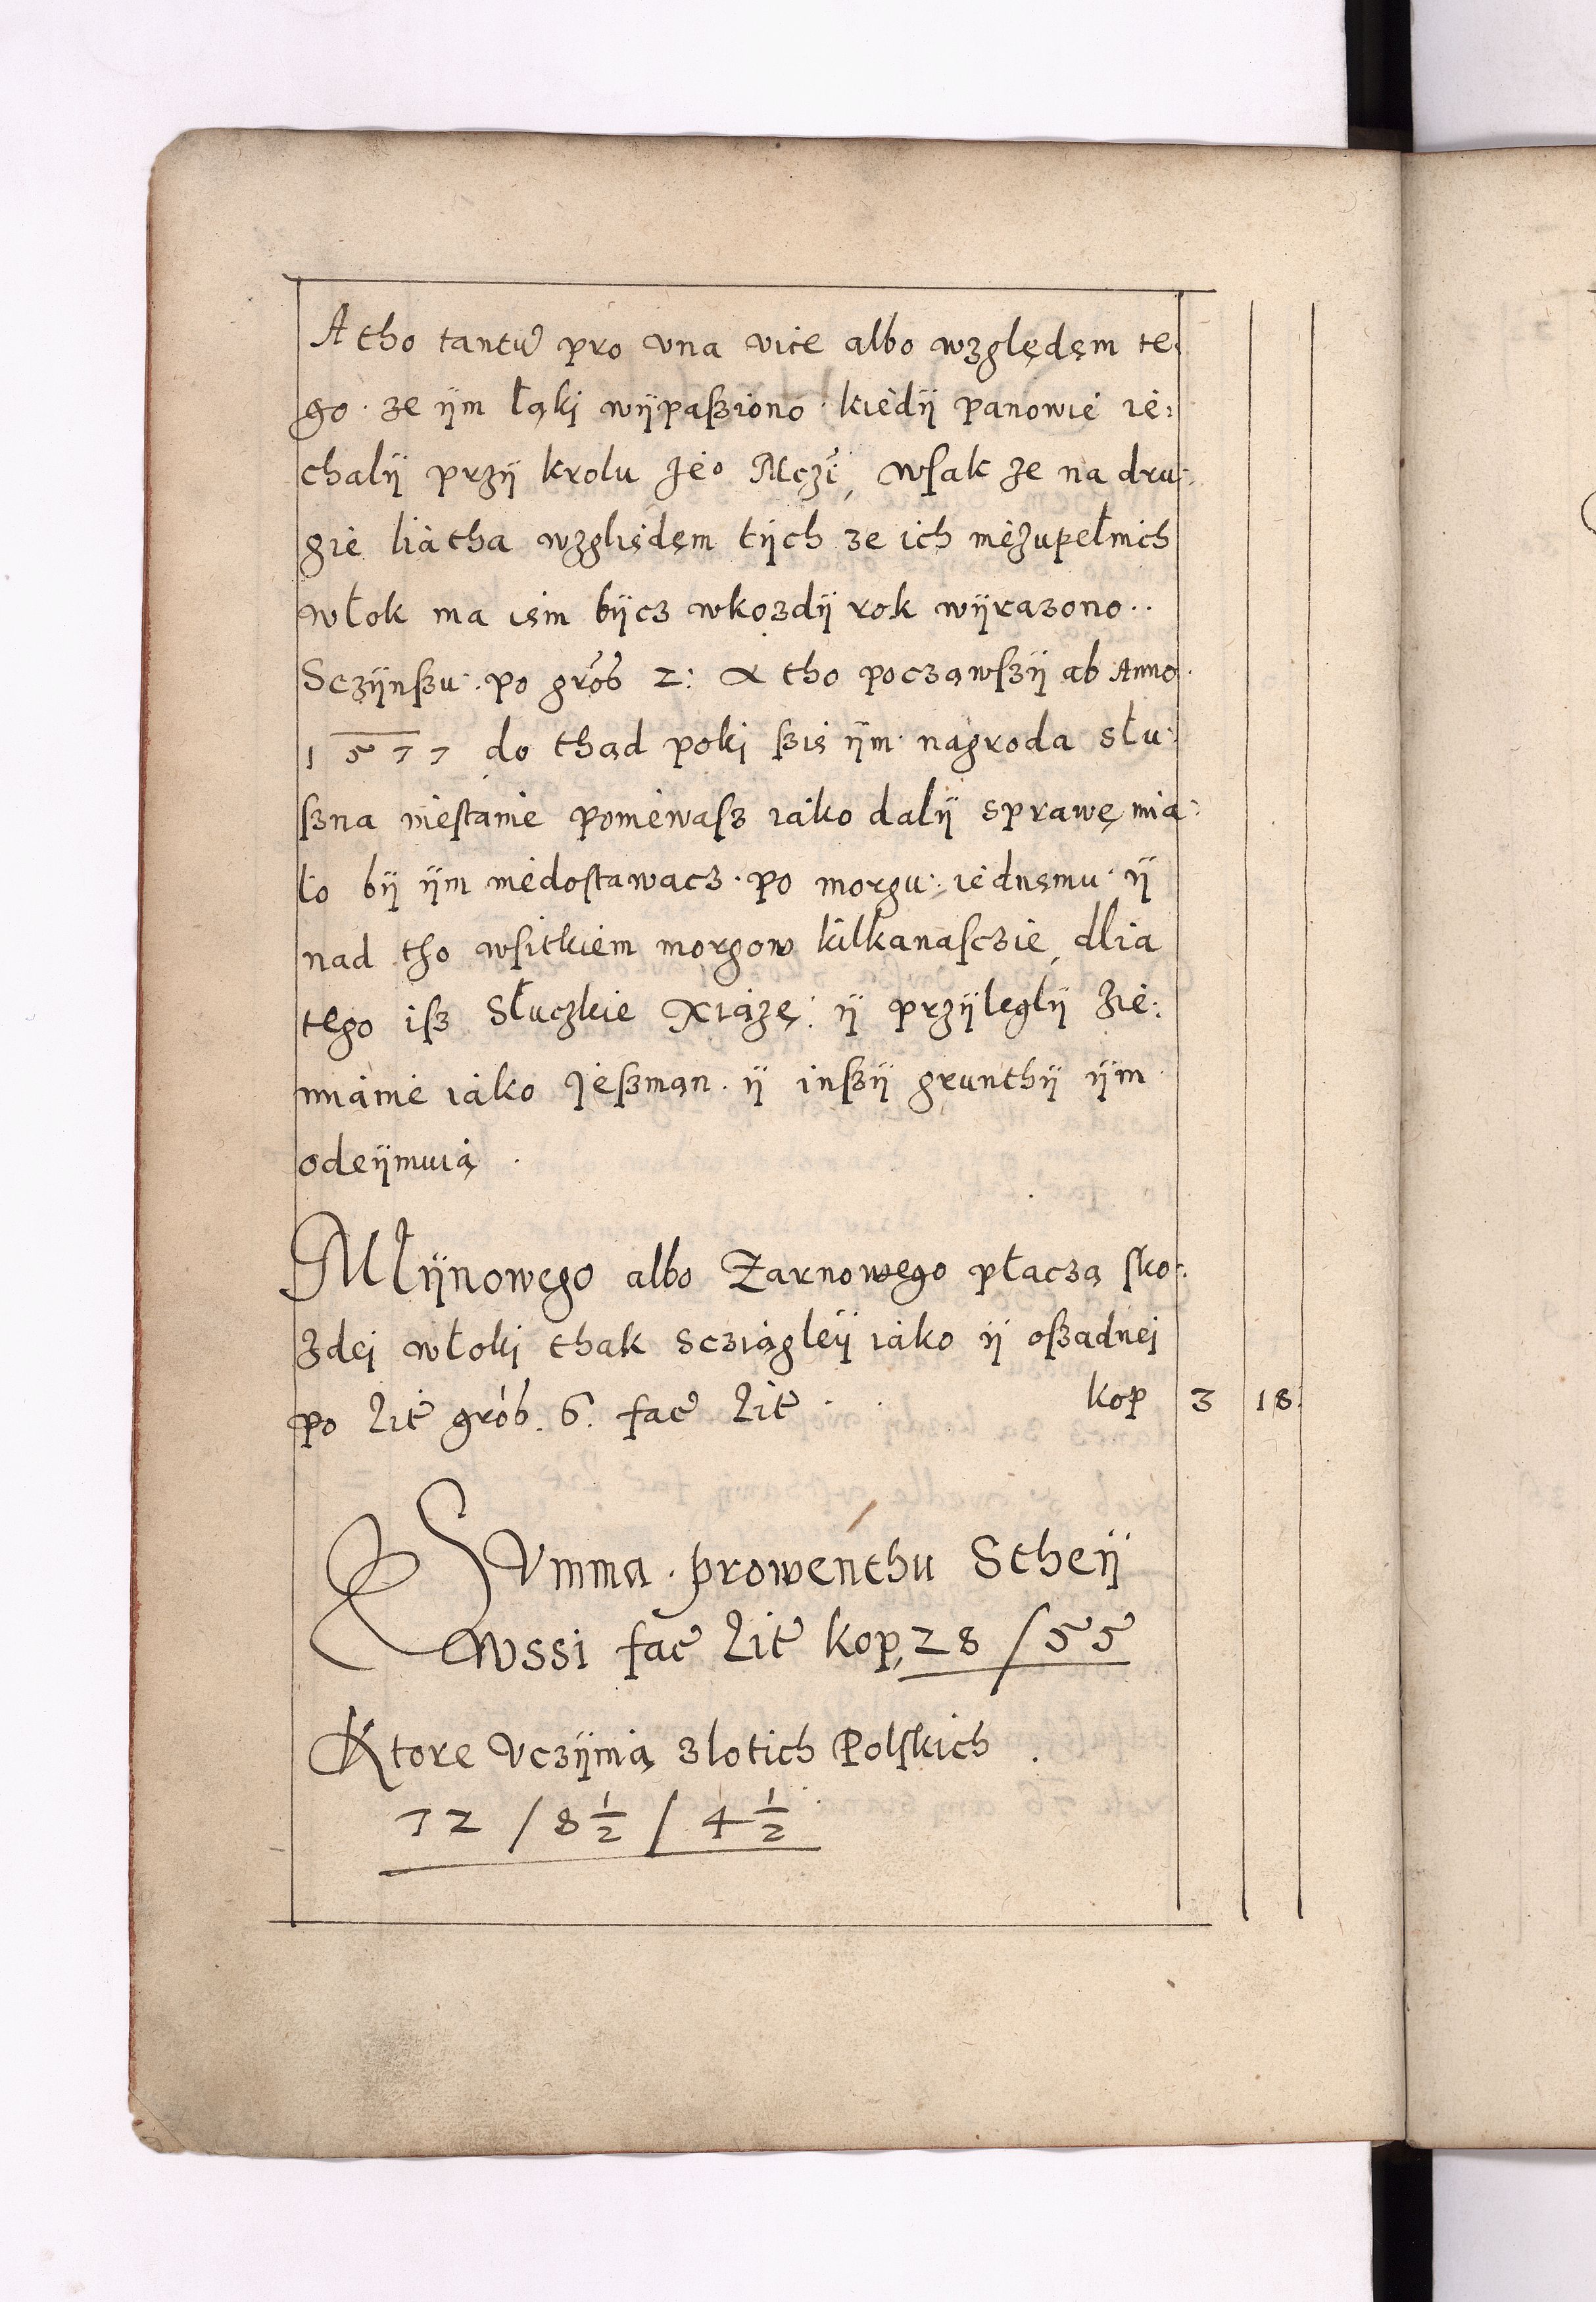 A tho tantu pro vna vice albo względęm te:
go. ze ijm łąkj wijpaßiono. kiedij panowie ie:
chalij przij krolu Jeo Mczi, wsak ze na dru:
gie liatha wzgliędęm tijch ze ich niezupełnich
włok ma ięm bijcz wkozdij rok wijrazono..
Sczijnßu. po grob 2: A tho poczawszij ab Anno.
1577 do thąd pokj ßię ijm nagroda słu:
szna niestanie poniewasz iako dalij sprawę mia:
ło bij ijm niedostawacz. po morgu. iednęmu. ij
nad tho wsitkiem morgow kilkanasczie, dlia
tego isz Słuczkie Xiążę: ij przijleglij Zie:
mianie iako Jeßman. ij inßij grunthij ijm.
odeijmuią.
Młijnowego albo Zarnowego płaczą sko:
zdej włokj thak Scziągleij iako ij oßadnej
po Lit grob. 6. fac Lit kop 3 18.
SVmma. prowenthu Stheij
wssi fac Lit kop, 28 / 55
Ktore Vczijnią zlotich Polskich.
72 / 8 1/2 / 4 1/2